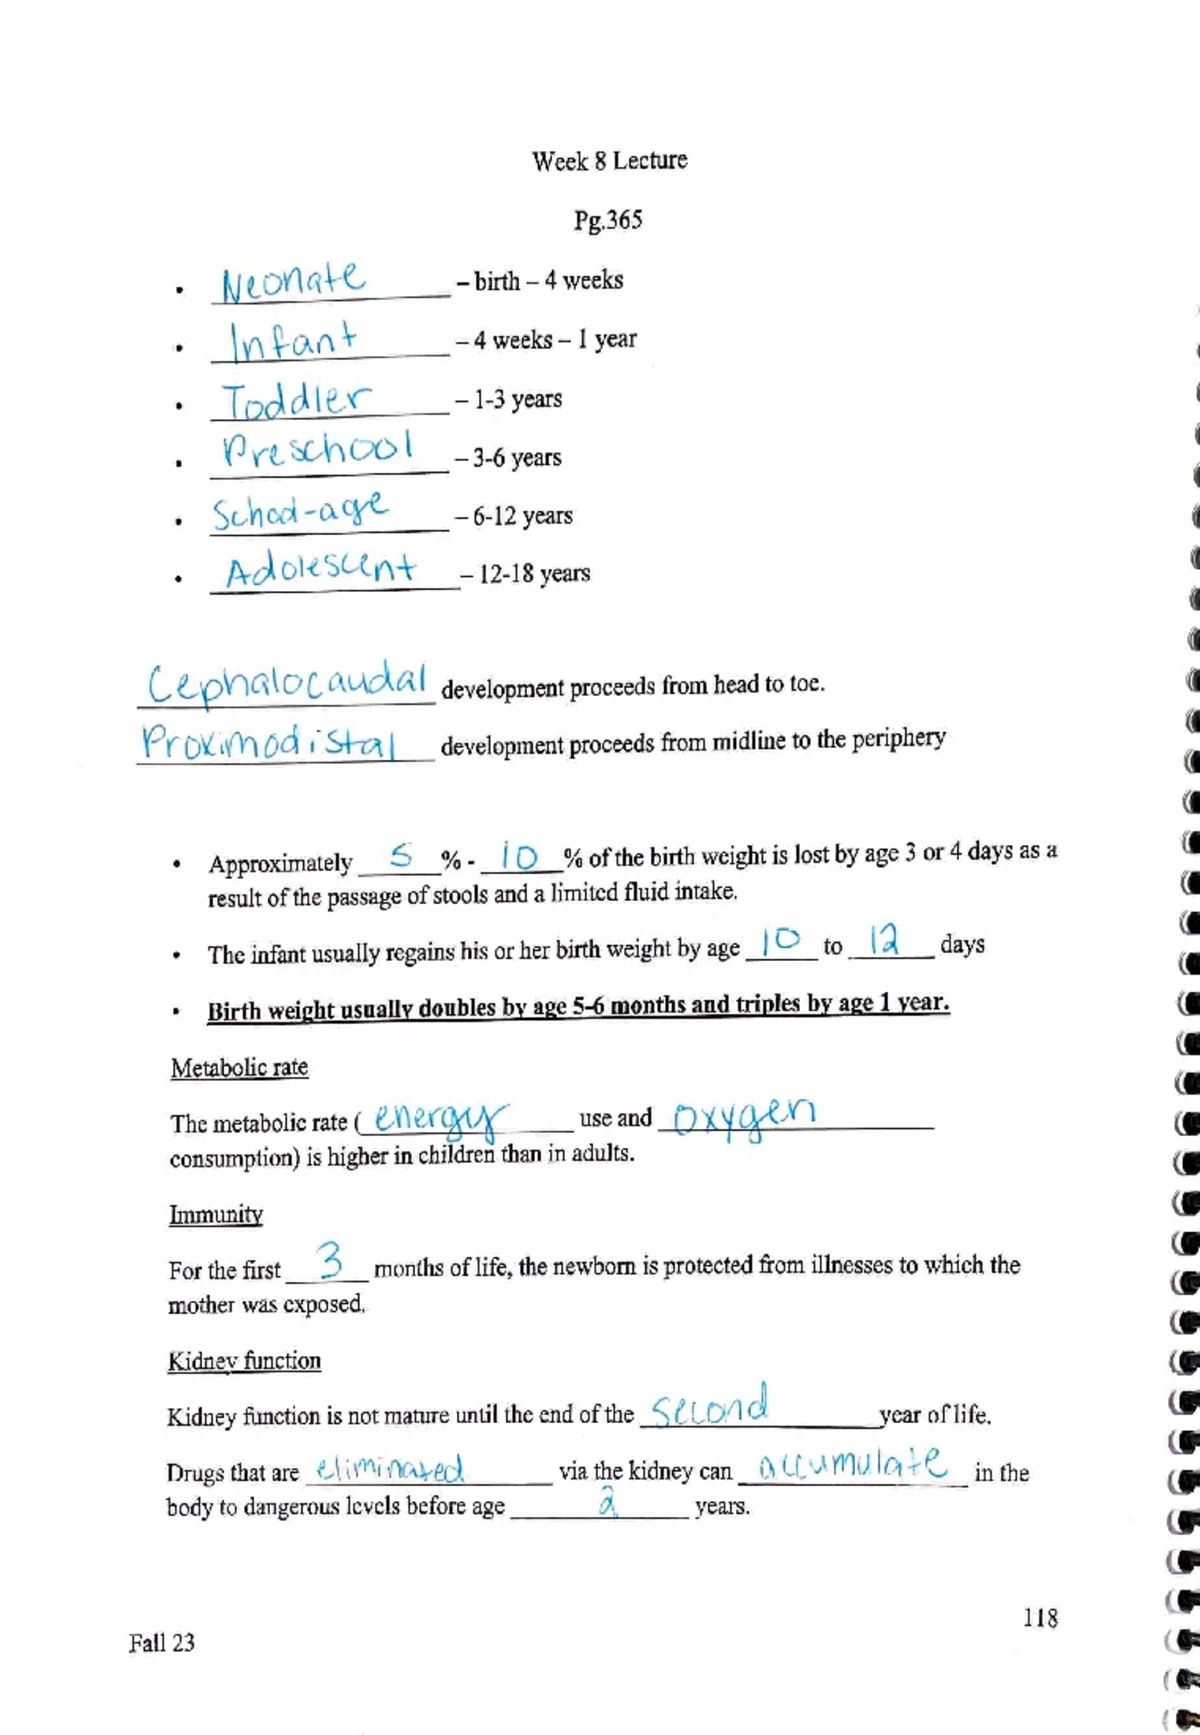 Week 8 Lecture
Pg.365
• Neonate – birth – 4 weeks
• Infant – 4 weeks – 1 year
• Toddler – 1-3 years
• Preschool – 3-6 years
• School-age – 6-12 years
• Adolescent – 12-18 years
Cephalocaudal development proceeds from head to toe.
Proximodistal development proceeds from midline to the periphery
• Approximately 5 % - 10 % of the birth weight is lost by age 3 or 4 days as a
result of the passage of stools and a limited fluid intake.
• The infant usually regains his or her birth weight by age 10 to 12 days
• Birth weight usually doubles by age 5-6 months and triples by age 1 year.
Metabolic rate
The metabolic rate ( energy use and oxygen
consumption) is higher in children than in adults.
Immunity
For the first 3 months of life, the newborn is protected from illnesses to which the
mother was exposed.
Kidney function
Kidney function is not mature until the end of the second year of life.
Drugs that are eliminated via the kidney can accumulate in the
body to dangerous levels before age 2 years.
118
Fall 23